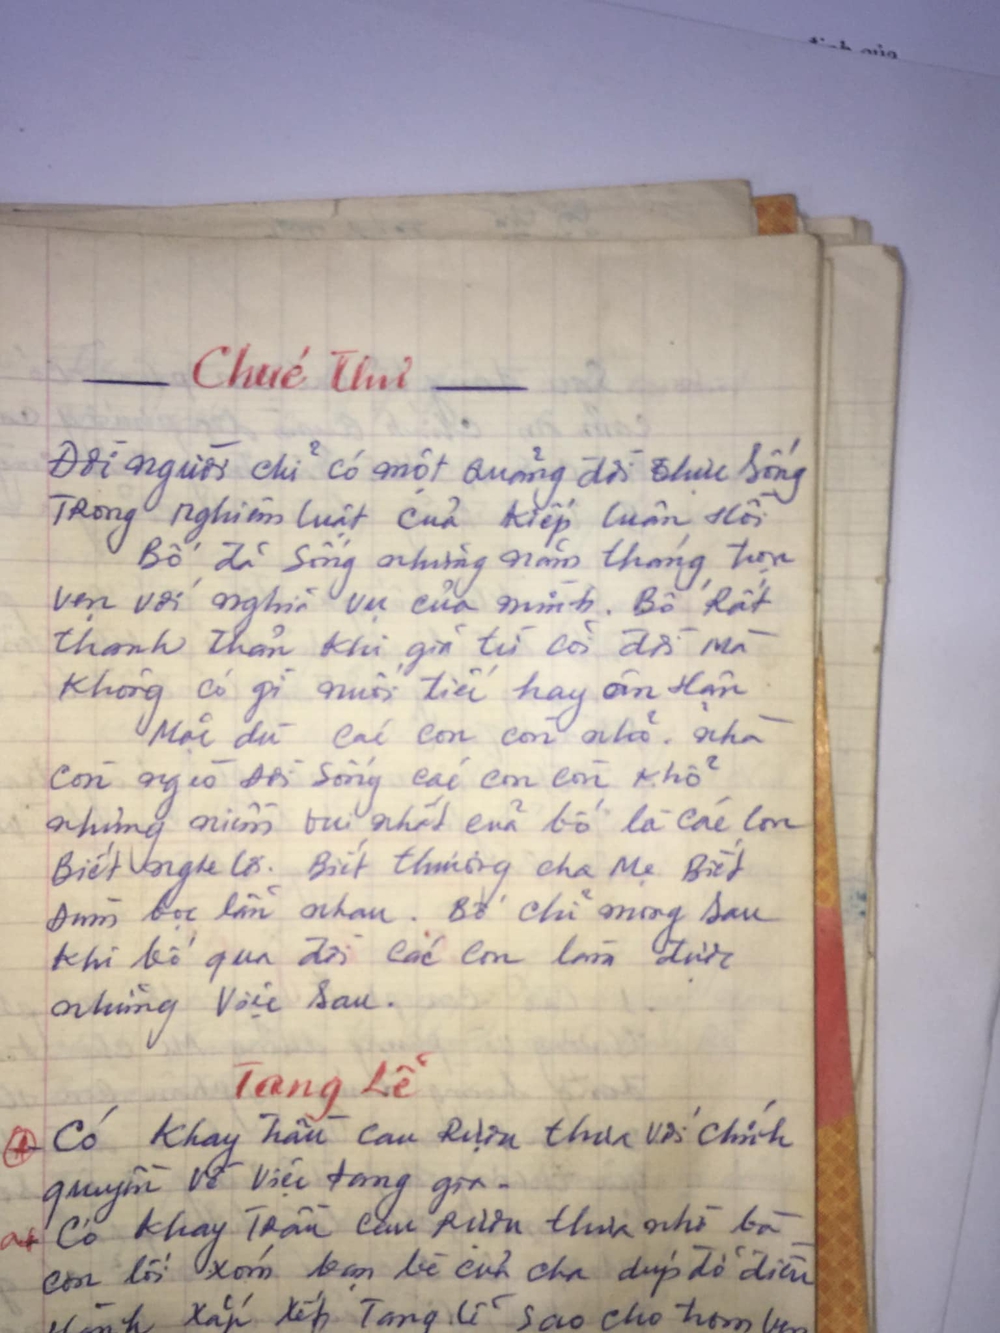 định của
Chúc Thư
Đời người chỉ có một quảng đời được Sống
Trong nghiêm luật của kiếp luân Hồi
Bố đã Sống những năm tháng trọn
vẹn với nghĩa vụ của mình. Bố Rất
thanh thản khi giả từ cõi đời mà
không có gì nuối tiếc hay ân Hận
Mặc dù các con còn nhỏ. nhà
còn ngèo đời Sống các con còn khổ
nhưng niềm vui nhất của bố là các con
Biết nghe lời. Biết thương cha Mẹ Biết
đùm bọc lẫn nhau. Bố chỉ mong Sau
khi bố qua đời các con làm được
những Việc Sau.
Tang Lễ
Có Khay Trầu cau Rượu thưa với chính
quyền về việc tang gia.
a+ Có Khay Trầu Cau Rượu thưa nhờ bà
con lối xóm bạn bè của cha dúp đỡ điều
Hành Xắp xếp Tang Lễ Sao cho trọn ven